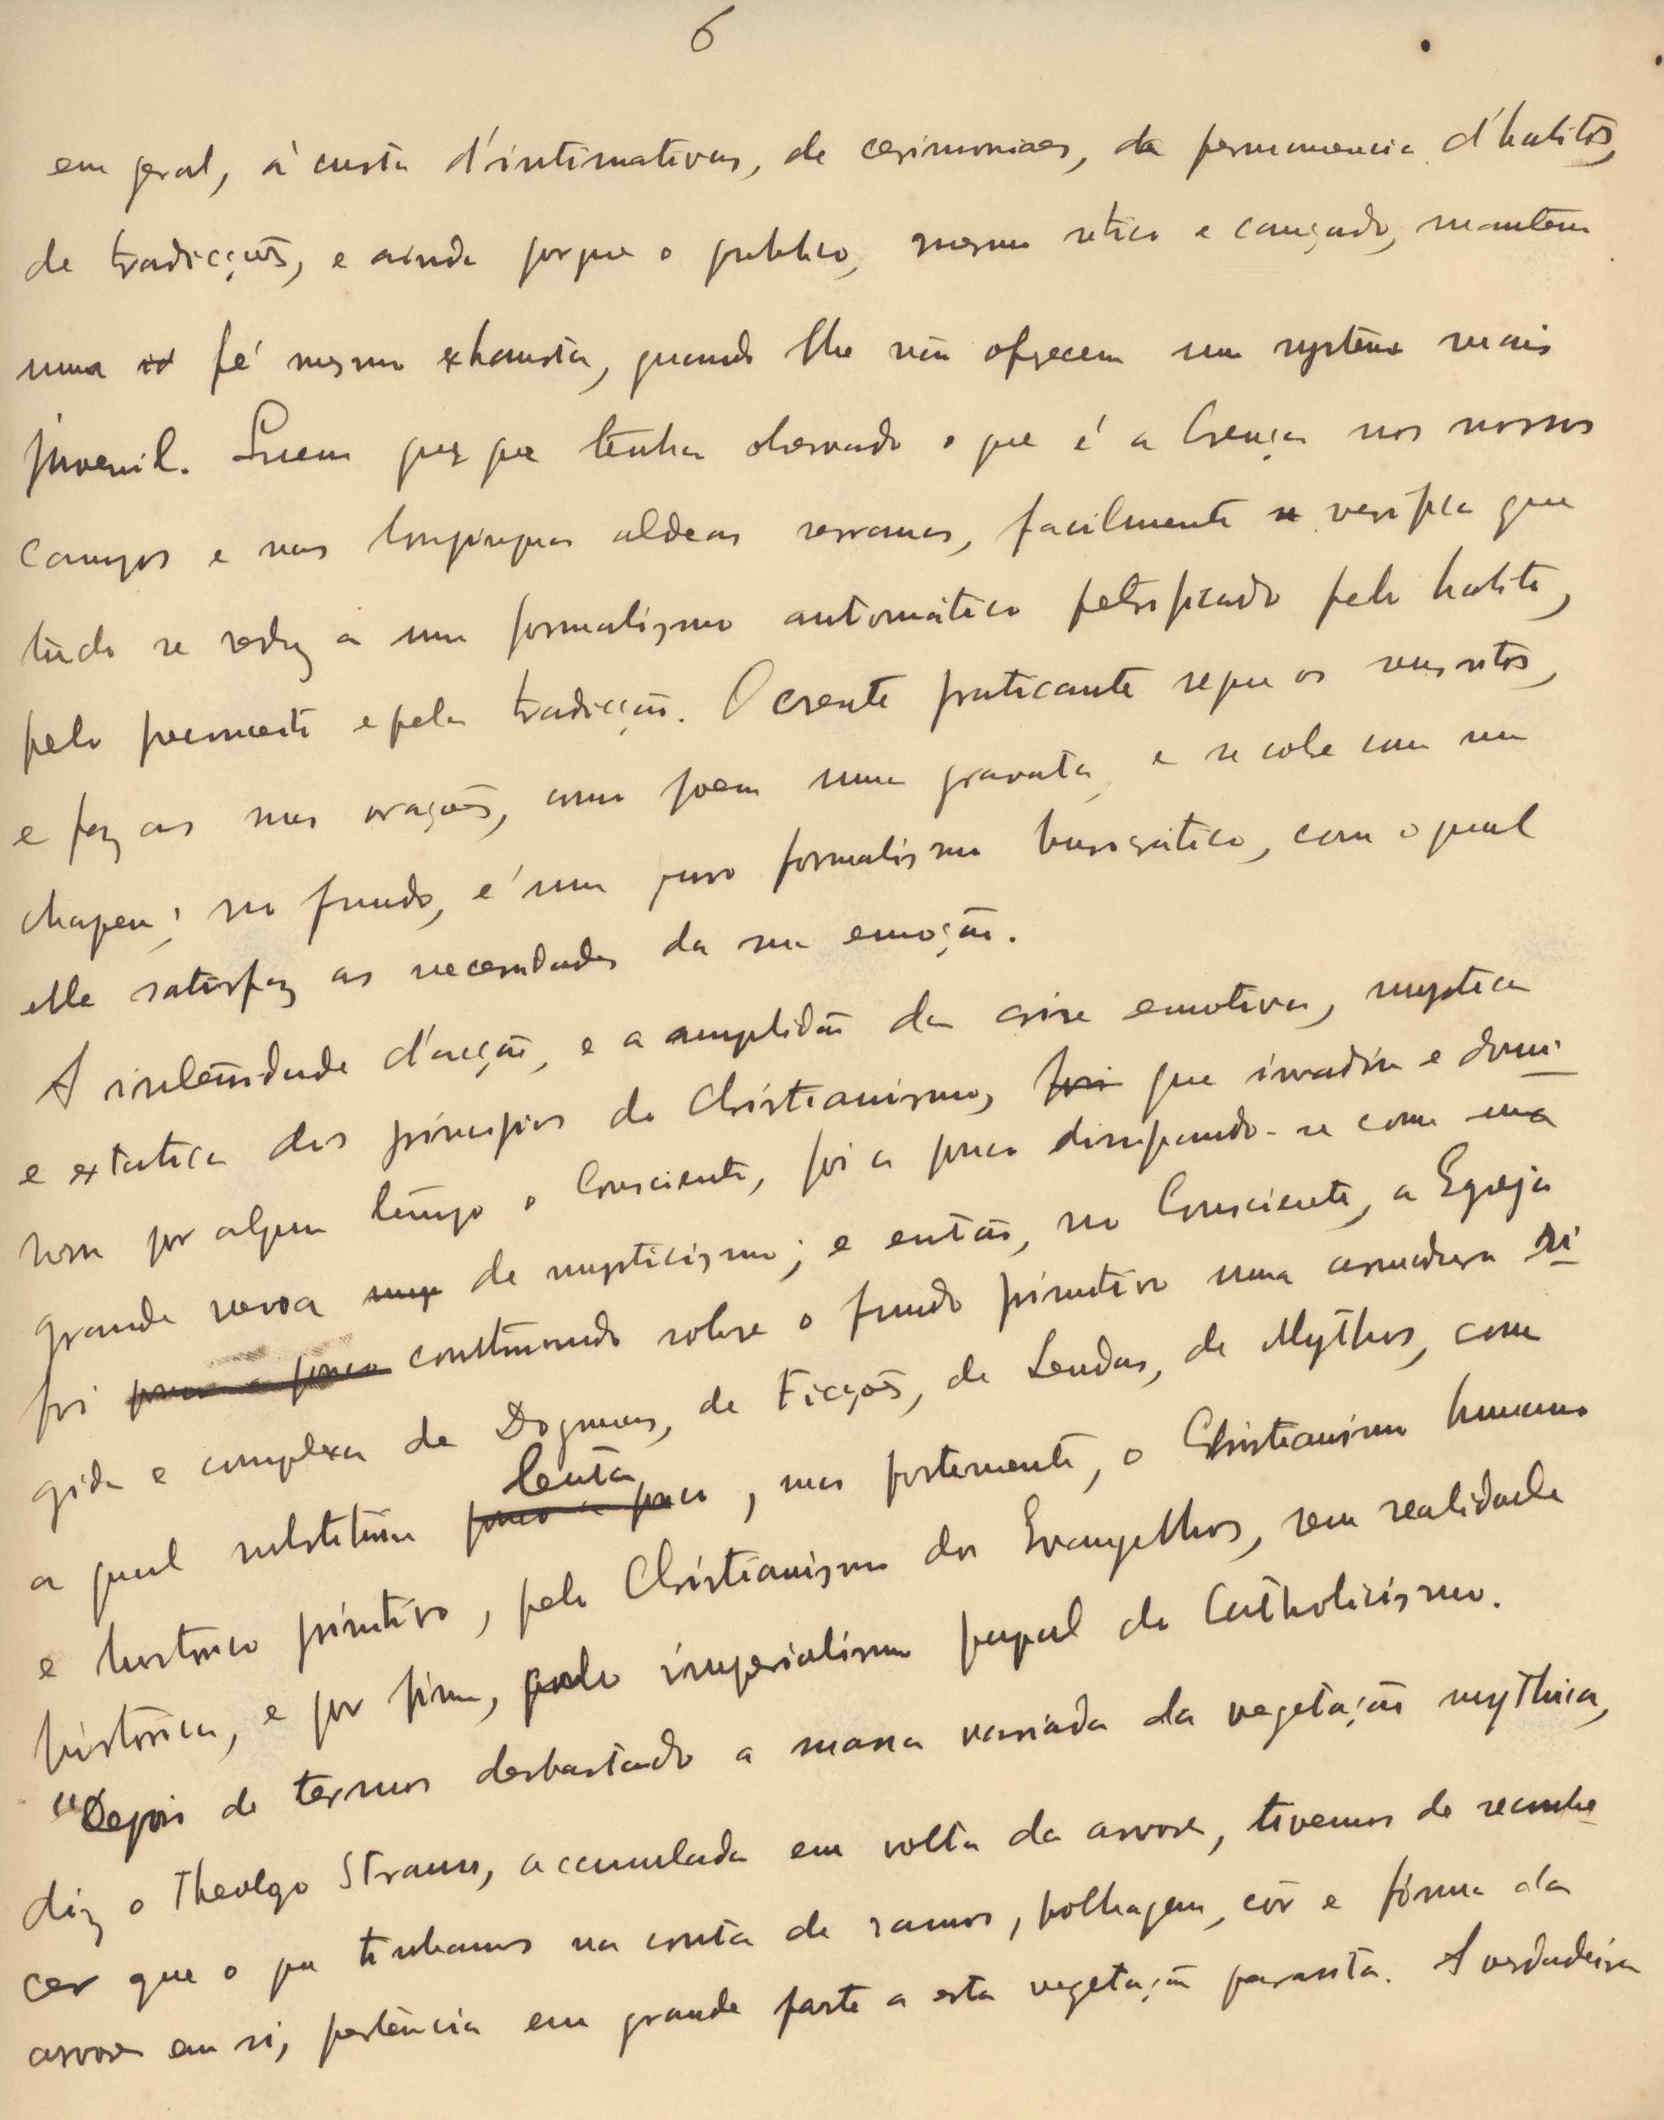 6
em geral, á custa d'intimativas, de cerimoniaes, da permanencia d'habitos,
de tradicções, e ainda porque o publico, mesmo cançado, mantem
uma fé mesmo exhausta, quando lhe não ofrecem um systema mais
juvenil. Quem quer que tenha observado o que é a Crença nos nossos
campos e nas longinquas aldeas serranas, facilmente se verifica que
tudo se reduz a um formalismo automático petrificado pelo habito,
pelo preconceito e pela tradicção. O crente praticante segue os seus ritos,
e faz as suas orações, como poem uma gravata, e se cobre com um
chapeu; no fundo, é um puro formalismo burocrático, com o qual
elle satisfaz as necessidades da sua emoção.
A intensidade d'acção, e a amplidão da crise emotiva, mystica
e extatica dos principios do Christianismo, que invadiu e domi-
nou por algum tempo o Consciente, foi a pouco dissipando-se como uma
grande nevoa de mysticismo; e então, no Consciente, a Egreja
foi construindo sobre o fundo primitivo uma armadura ri-
gida e complexa de Dogmas, de Ficções, de Lendas, de Mythos, com
a qual substituiu lenta, mas fortemente, o Christianismo humano
e historico primitivo, pelo Christianismo dos Evangelhos, sem realidade
histórica, e por fim, pelo imperialismo papal do Catholicismo.
"Depois de termos desbastado a massa variada da vegetação mythica,
diz o Theologo Strauss, accumulada em volta da arvore, tivemos de reconhe-
cer que o que tinhamos na conta de ramos, folhagem, côr e fórma da
arvore em si, pertencia em grande parte a esta vegetação parasita. A verdadeira